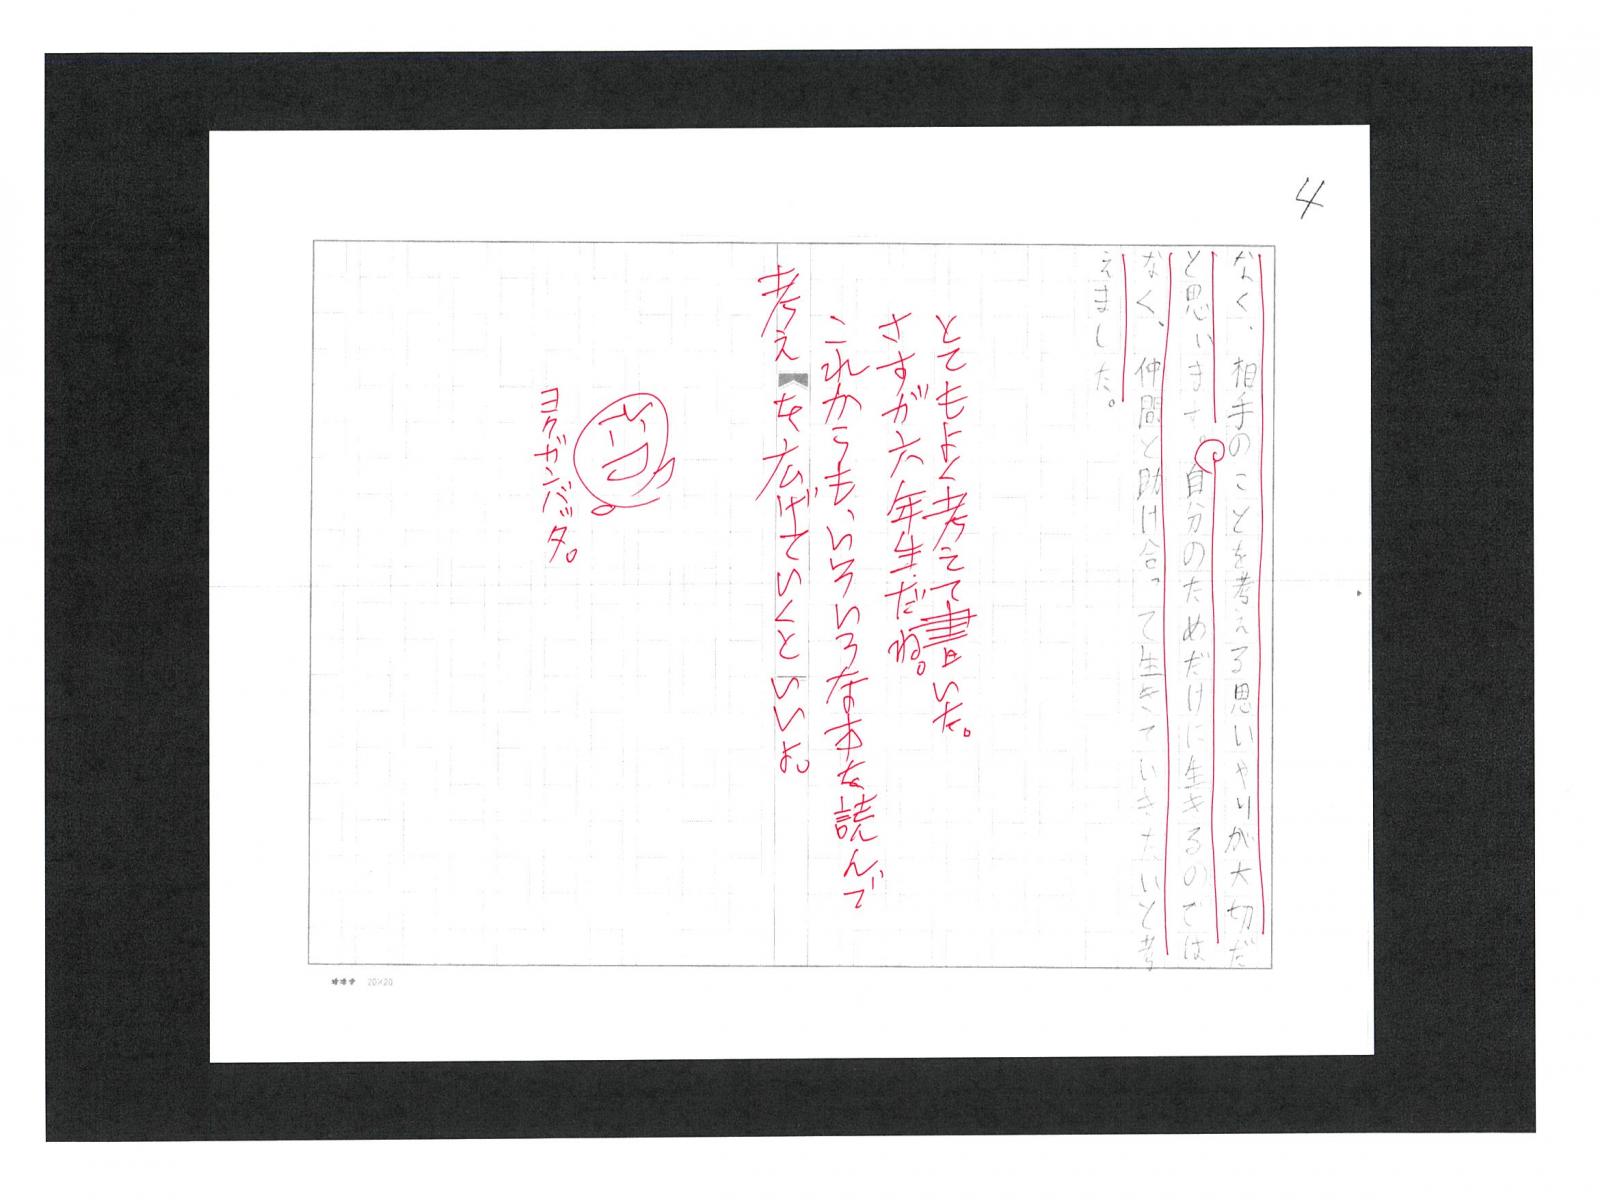 4
なく、相手のことを考える思いやりが大切だ
と思います。自分のためだけに生きるのでは
なく、仲間と助け合って生きていきたいと考
えました。
とてもよく考えて書いた。
さすが六年生だね。
これからも、いろいろな本を読んで
考えを広げていくといいよ。
ヨクガンバッタ。
20×20